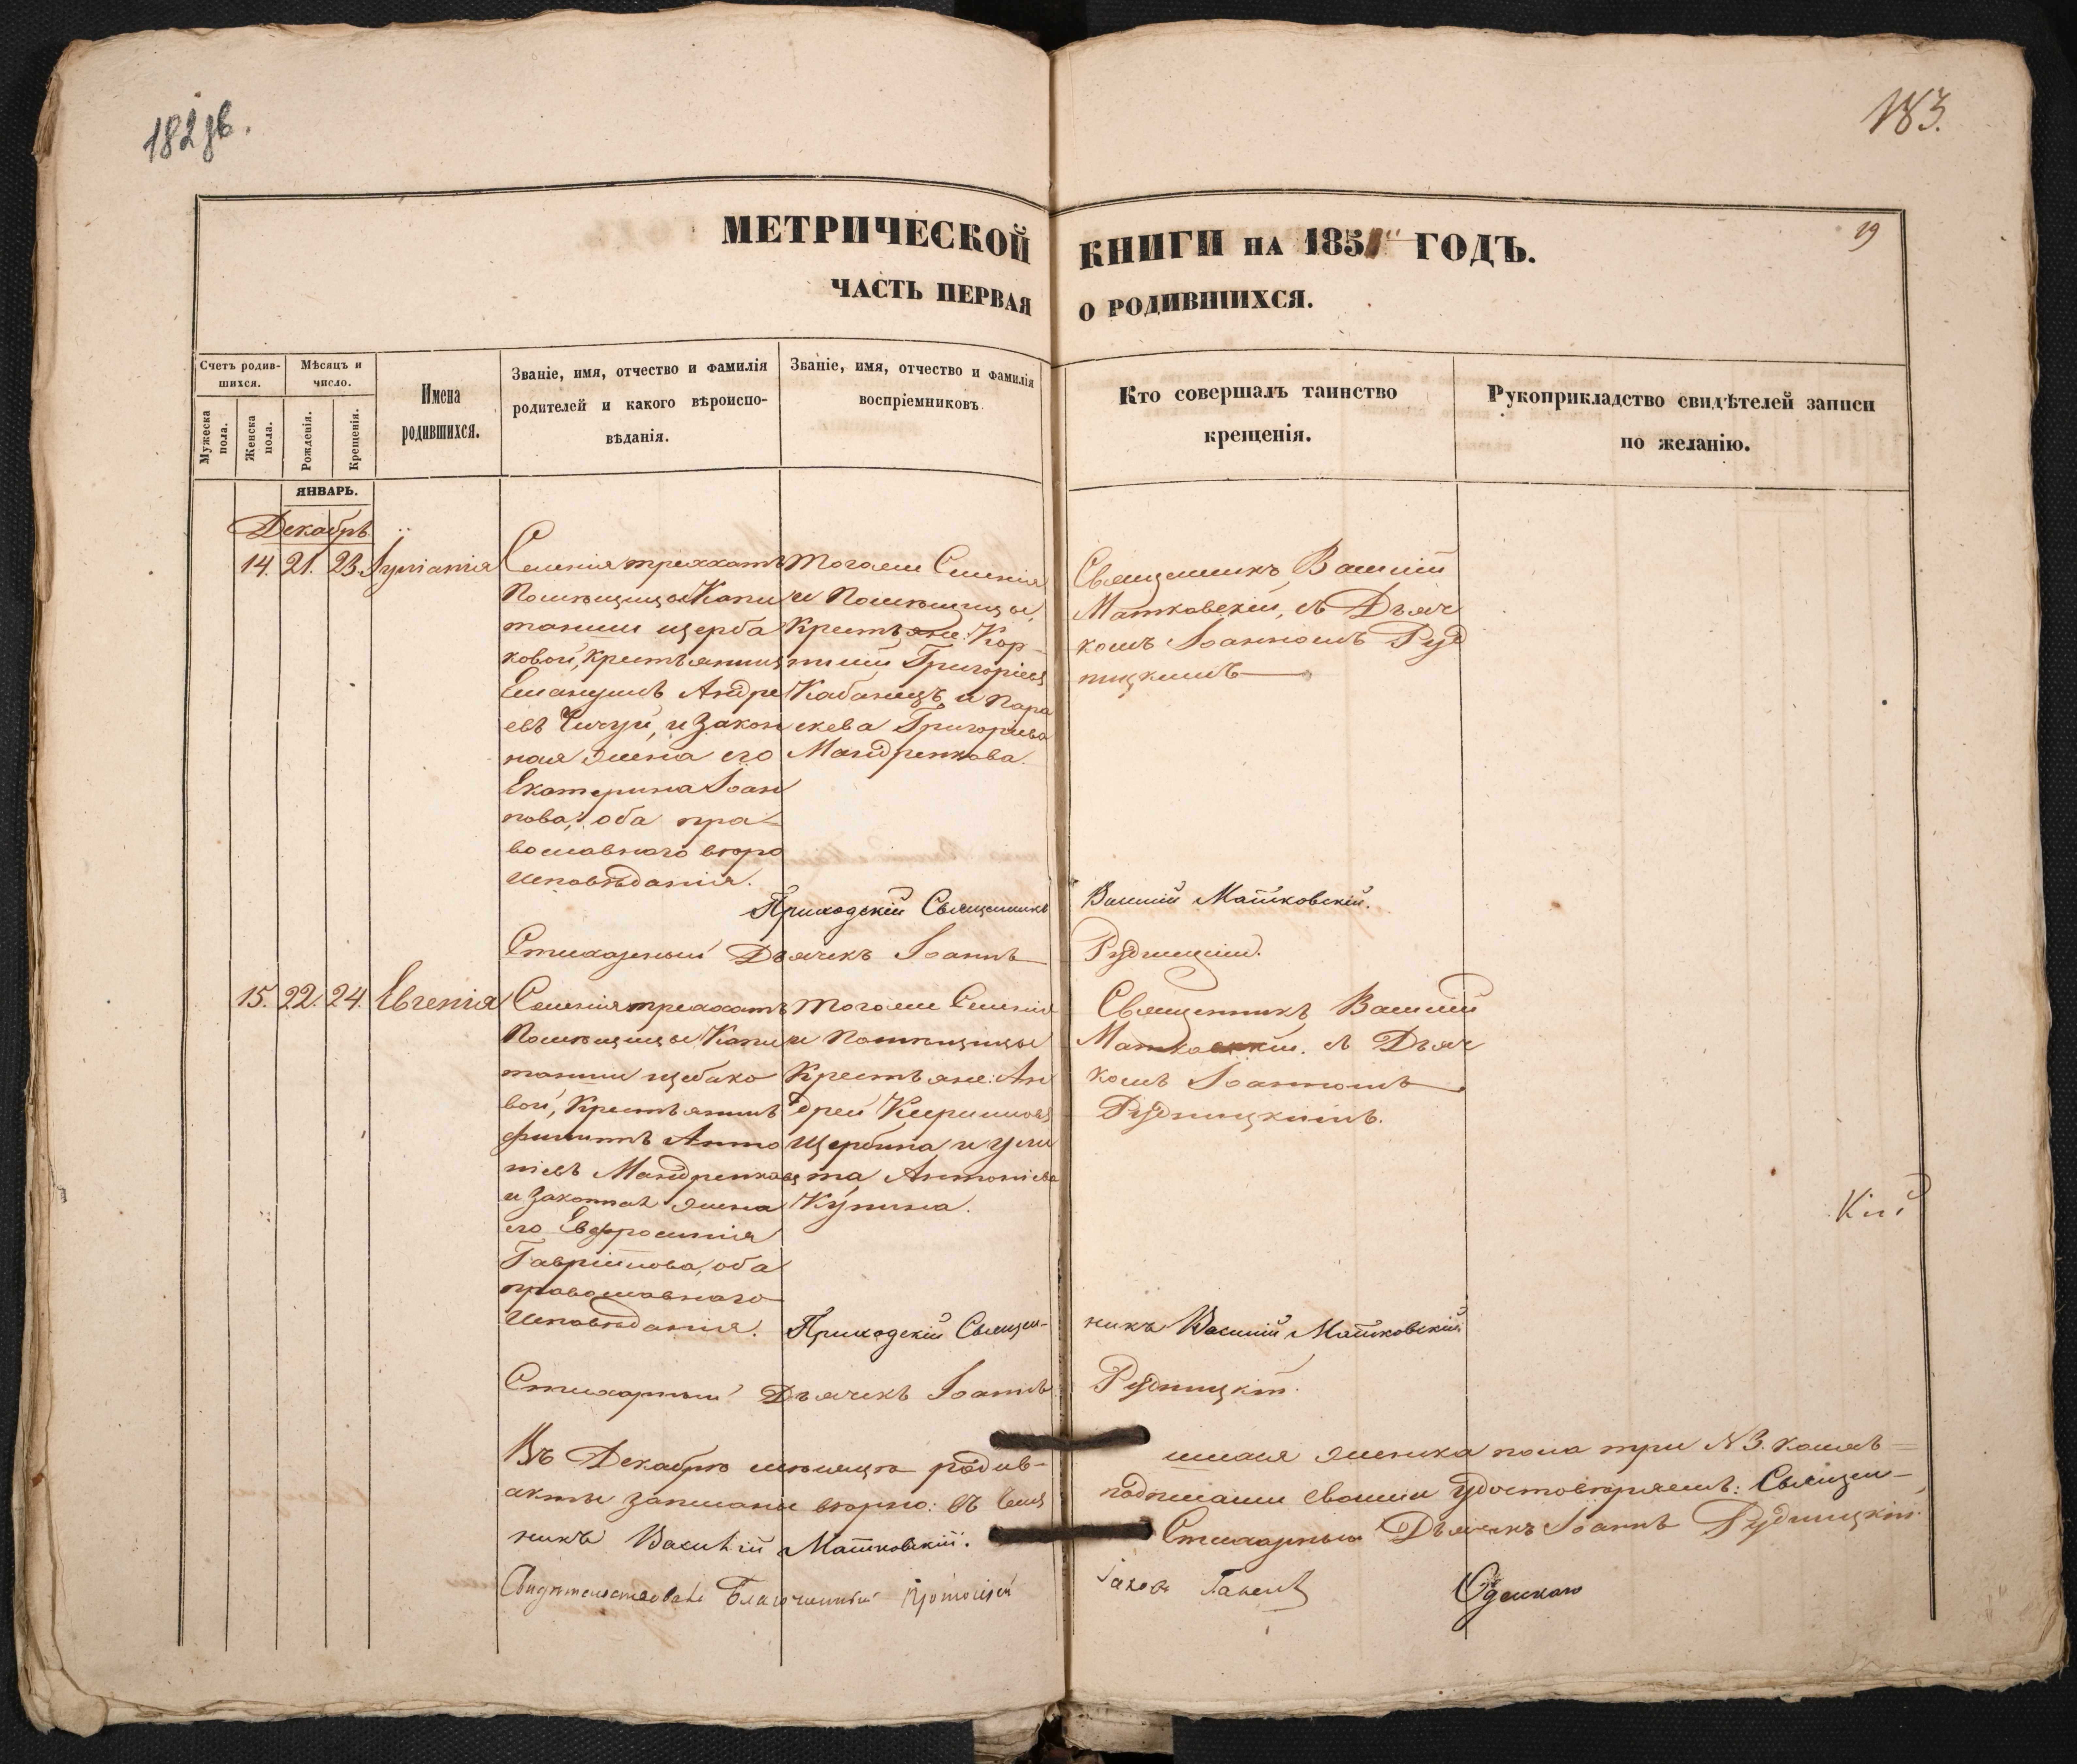 182 зв.
183.
19
МЕТРИЧЕСКОЙ КНИГИ НА 1851 ГОДЪ.
ЧАСТЬ ПЕРВАЯ О РОДИВШИХСЯ.
Счетъ родив-
шихся.
Мужеска
пола.
Женска
пола.
Мѣсяцъ и
число.
Рожденія.
Крещенія.
Имена
родившихся.
Званіе, имя, отчество и фамилія
родителей и какого вѣроиспо-
вѣданія.
Званіе, имя, отчество и фамилія
воспріемниковъ
Кто совершалъ таинство
крещенія.
Рукоприкладство свидѣтелей записи
по желанію.
ЯНВАРЬ.
Декабрь
14. 21. 23. Іуліанія
Селенія треххатъ
Помѣщицы Капи
танши щерба
ковой, крестьянинъ
Емануилъ Андре
евъ Чичуй, и закон
ная жена его
Екатерина Іоан
нова, оба пра-
вославнаго вѣро
исповѣданія.
Тогоже Селенія
и Помѣщицы,
Крестьяне: Кор-
нилій Григоріевъ
Кабанецъ и Пара
скева Григорьева
Мандренкова.
Священникъ Василій
Матковскій, съ Дьяч
комъ Іоанномъ Руд
ницкимъ
Приходскій Священникъ Василій Матковскій.
Стихарный Дьячекъ Іоаннъ Рудницкій.
15. 22. 24. Евгенія
Селенія треххатъ
Помѣщицы Капи
танши щебако
вой, Крестьянинъ
Филипъ Анто
ніевъ Мандренковъ
и законная жена
его Евфросинія
Гавріилова, оба
православнаго
Исповѣданія.
Тогоже Селенія
и Помѣщицы
Крестьяне: Ан
дрей Кириловъ
Щербина и Ули
та Антоніева
Купина.
Священникъ Василій
Матковскій. съ Дьяч
комъ Іоанномъ
Рудницкимъ.
Приходскій Священ-
никъ Василій Матковскій
Стихарный Дьячекъ Іоаннъ Рудницкій.
Въ Декабрѣ мѣсяцѣ родив-
шихся женска пола три №3. коихъ
акты записаны вѣрно: въ чемъ
подписами своими удостовѣряемъ: Священ-
никъ Василій Матковскій.
Стихарный Дьячекъ Іоаннъ Рудницкій
Свидѣтельствовалъ Благочинный Протоіерей